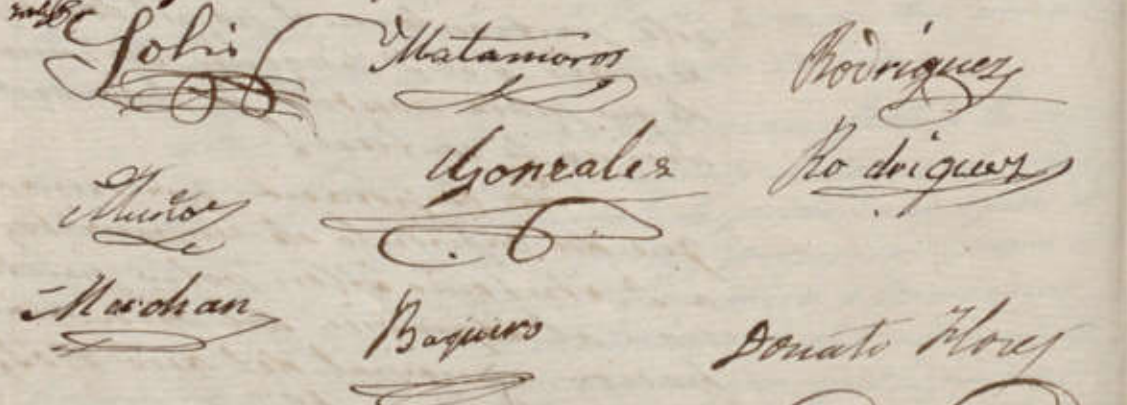 Solis Matamoros Rodriguez
Muñoz Gonzalez Rodriguez
Marchan Baquero Donato Flores